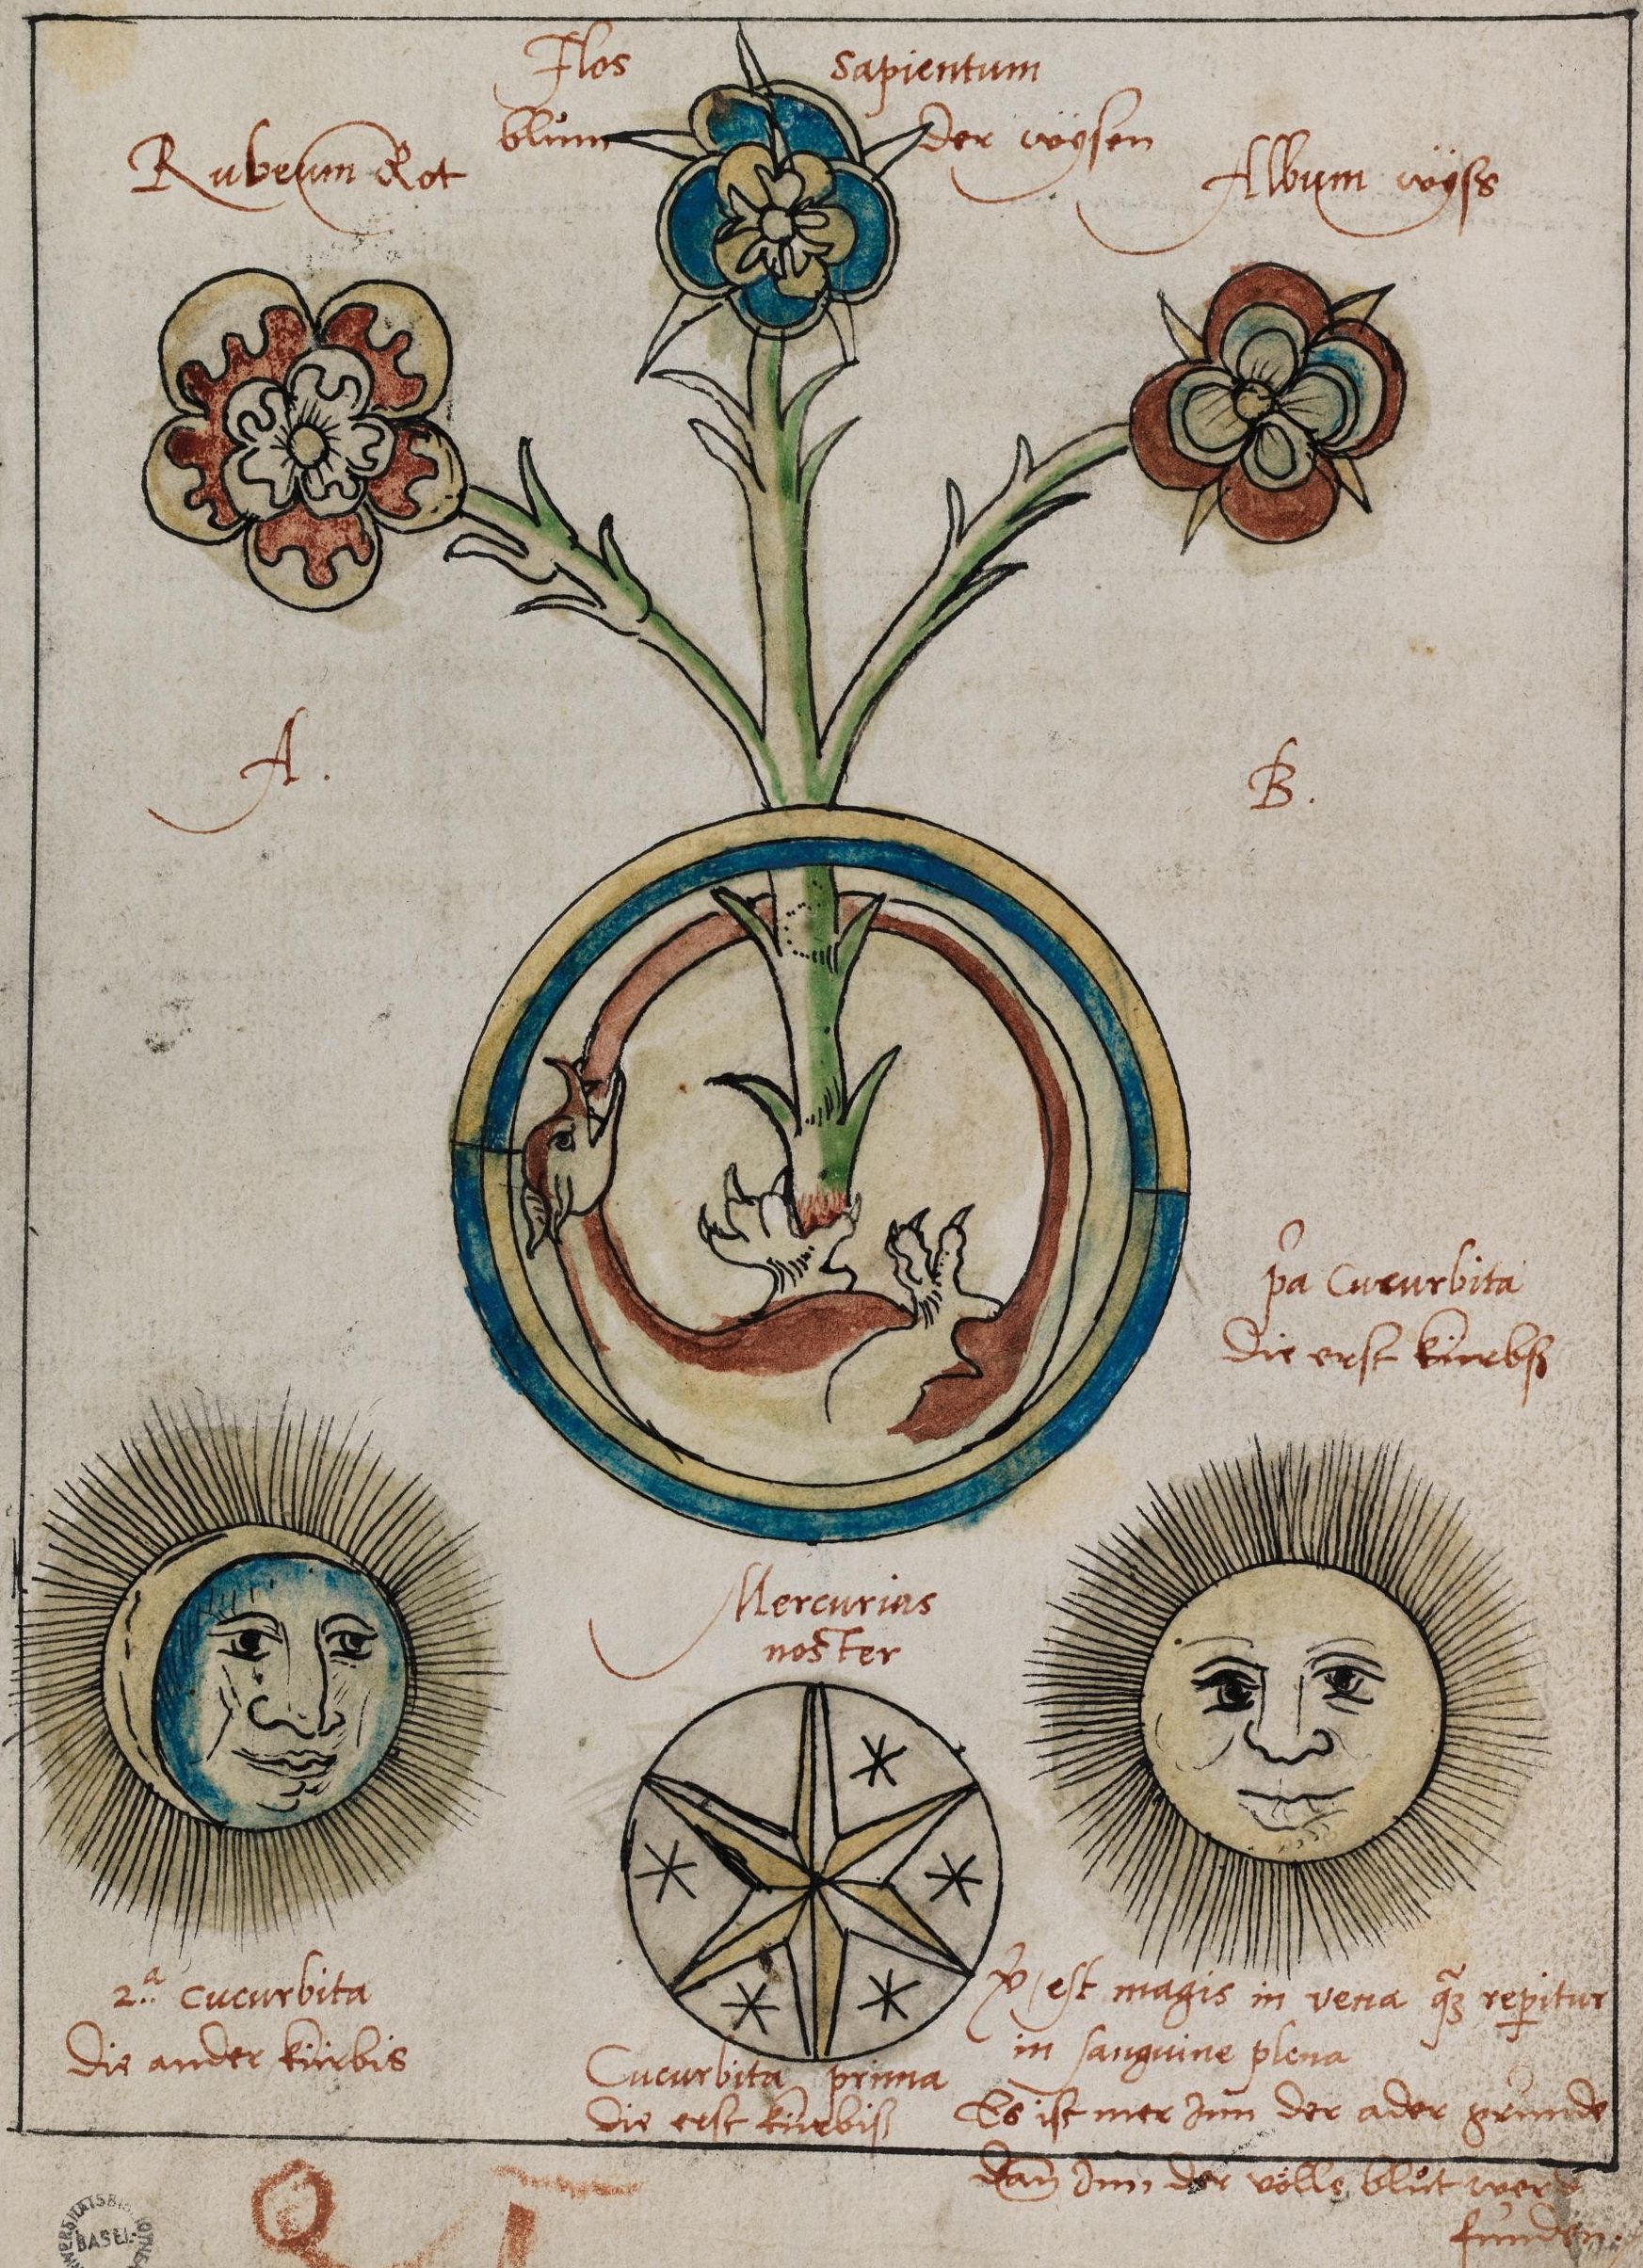 Flos Sapientum
blům der wÿsen
Rubeum Rot
Album wÿss
A.
B.
pa Cucurbita
Die erst kürbß
Mercurius
noster
2.a Cucurbita
Die ander kürbis
Cucurbita prima
die erst kürbiß
est magis in vena qz repitur
in sanguine plena
Es ist mer Inn der ader grunde
Dan Inn der völle blůt werd
funden.
BASEL